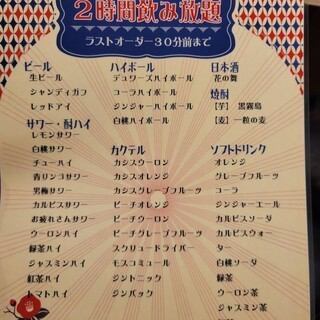 2時間飲み放題
ラストオーダー30分前まで
ビール
生ビール
シャンディガフ
レッドアイ
サワー・酎ハイ
レモンサワー
白桃サワー
チューハイ
青リンゴサワー
男梅サワー
カルピスサワー
お疲れさんサワー
ウーロンハイ
緑茶ハイ
ジャスミンハイ
紅茶ハイ
トマトハイ
ハイボール
デュワーズハイボール
コーラハイボール
ジンジャーハイボール
白桃ハイボール
カクテル
カシスウーロン
カシスオレンジ
カシスグレープフルーツ
ピーチオレンジ
ピーチウーロン
ピーチグレープフルーツ
スクリュードライバー
モスコミュール
ジントニック
ジンバック
日本酒
花の舞
焼酎
【芋】 黒霧島
【麦】 一粒の麦
ソフトドリンク
オレンジ
グレープフルーツ
コーラ
ジンジャーエール
カルピスソーダ
カルピスウォー
ター
白桃ソーダ
緑茶
ウーロン茶
ジャスミン茶